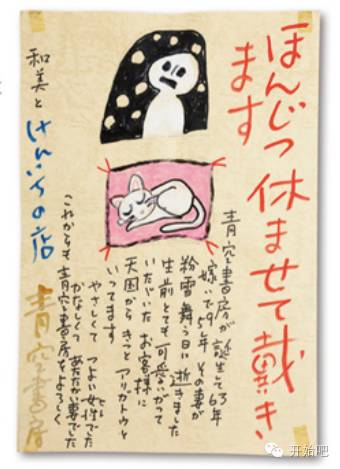 ほんじつ休ませて戴き
ます
青空書房が誕生して
嫁いで 年 その妻が
粉雪舞う日に 逝きました
生前とても可愛いがって
いただいた お客様に
天国から きっと アリガトウと
いってます
やさしくて つよい女性でした
かなしくて あたたかい妻でした
これからも 青空書房をよろしく
和美と けんいちの店 青空書房
开始吧